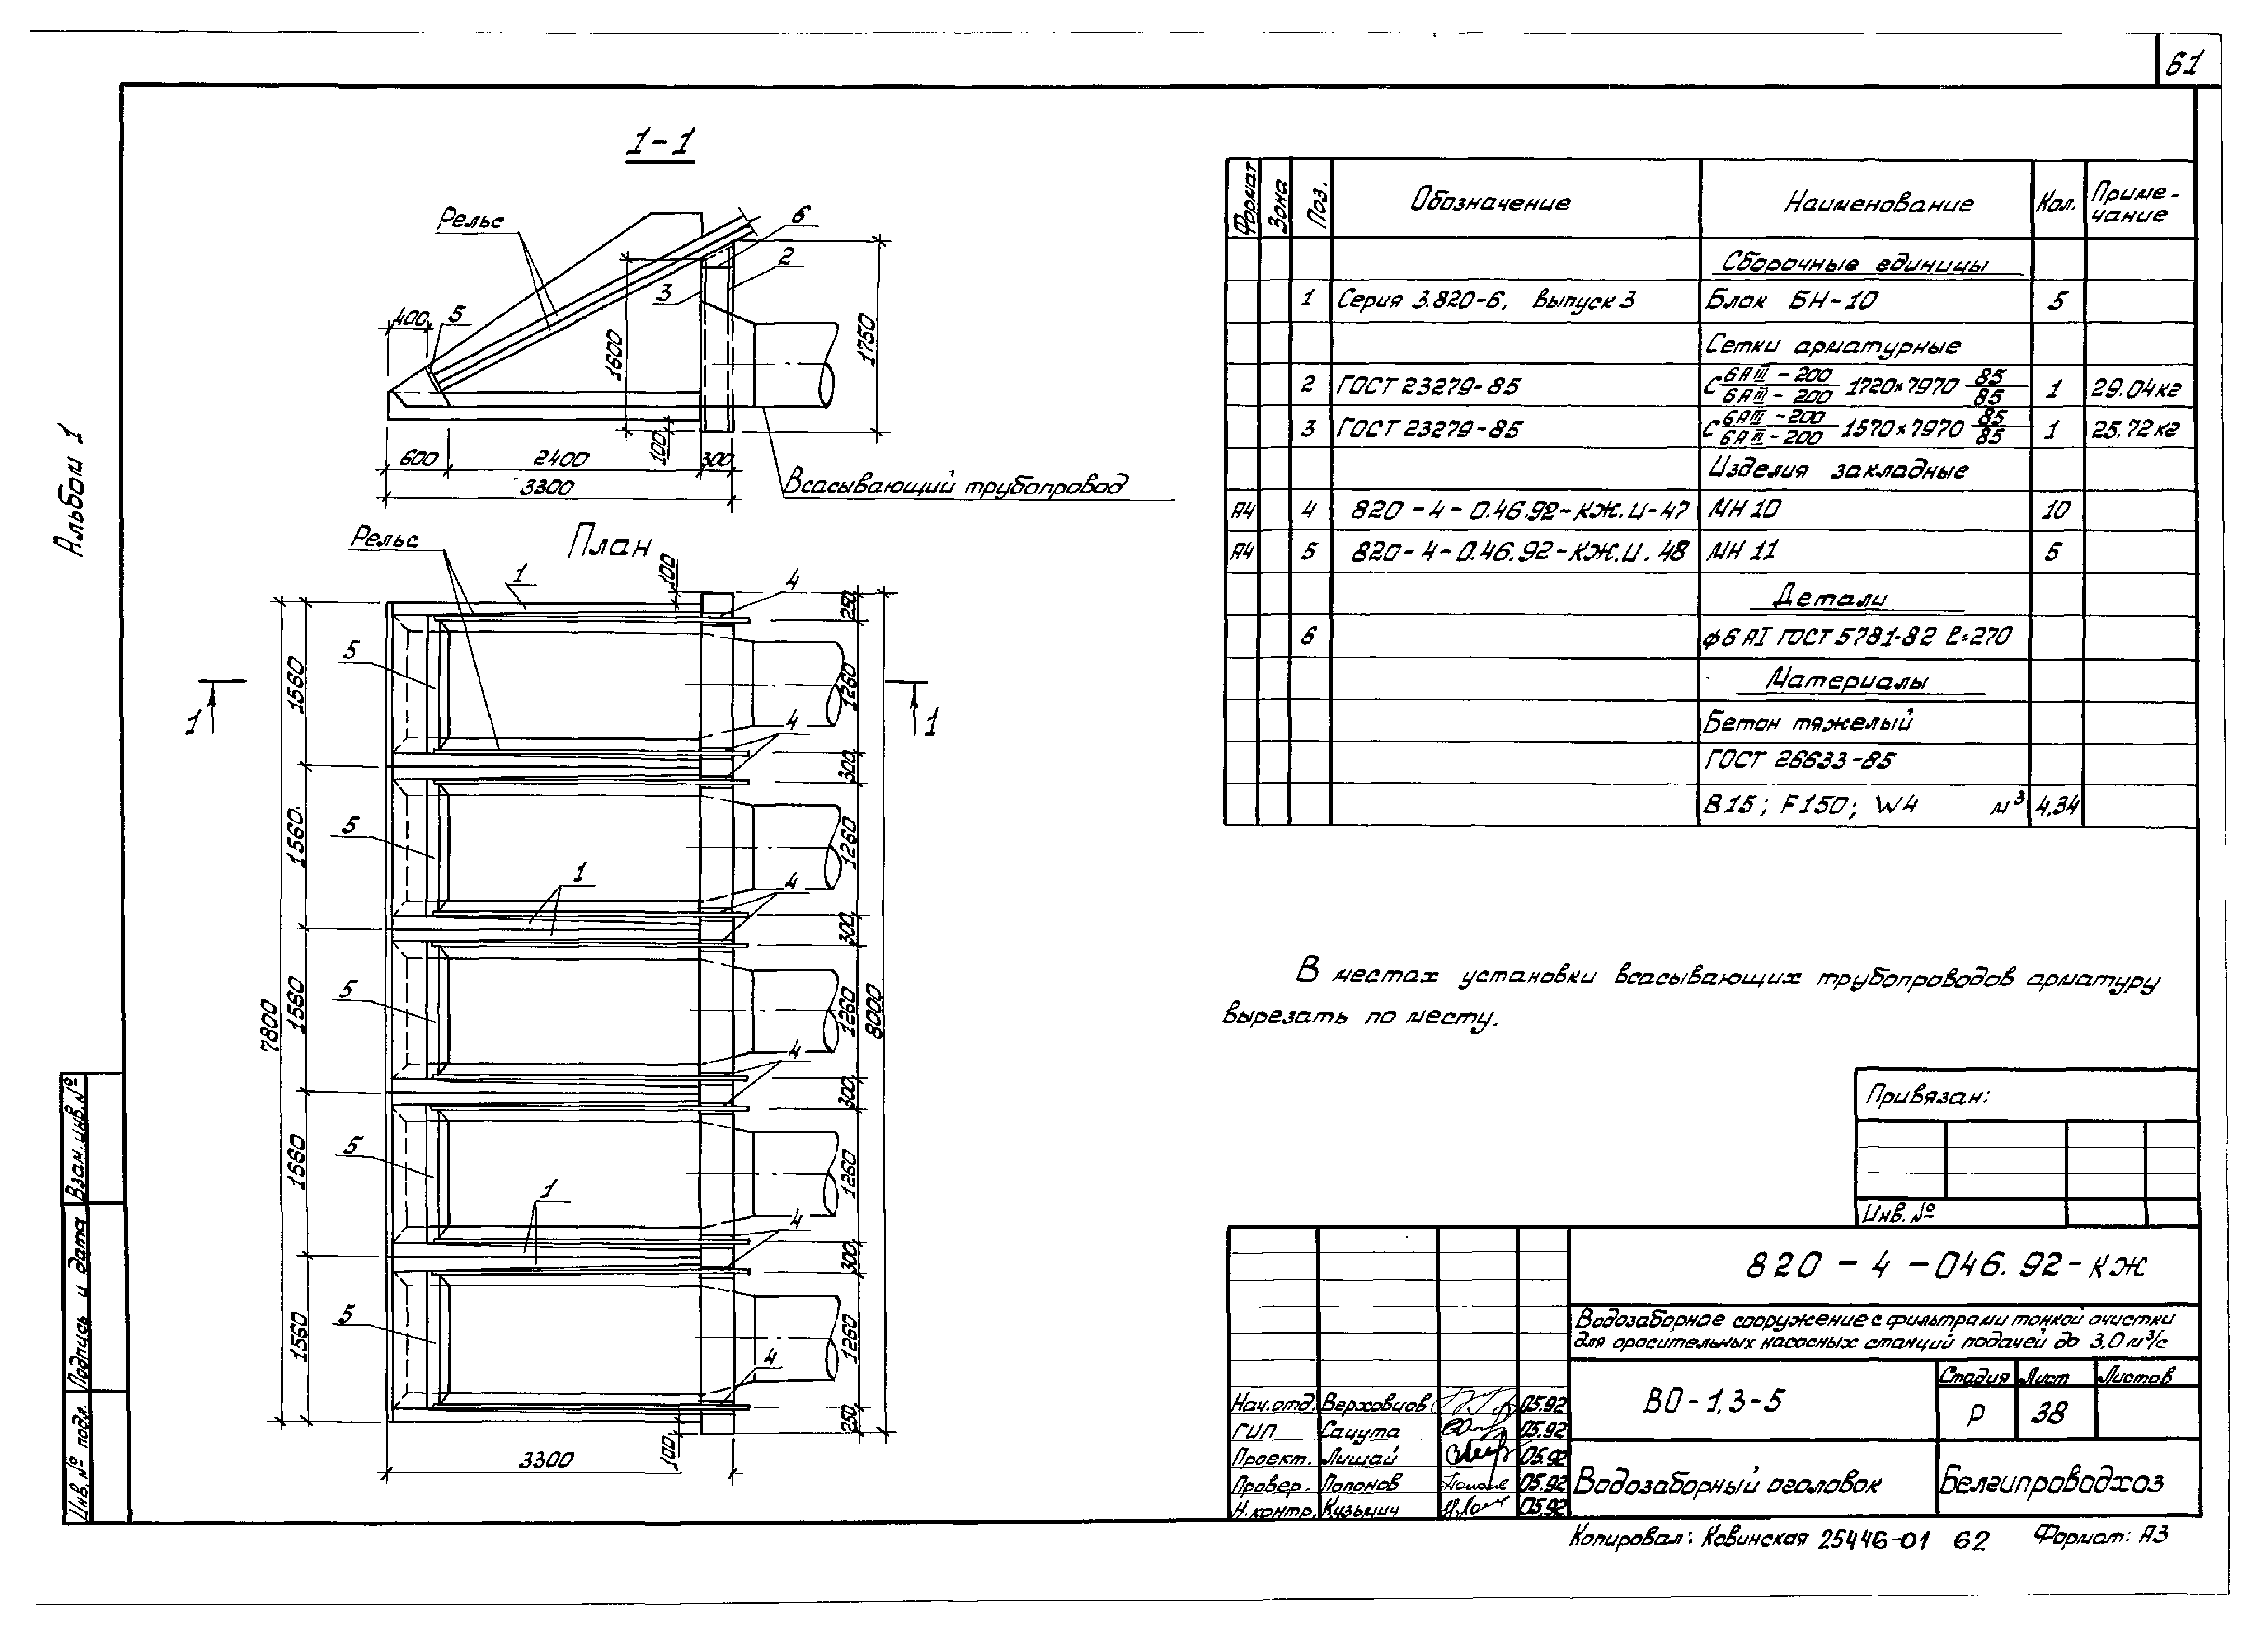 61
Альбом 1
1-1
Рельс
6
2
3
400
5
1600
1750
100
600
2400
300
3300
Всасывающий трубопровод
План
Рельс
1
100
4
250
5
1560
1260
1
1
4
300
5
1560
1260
1
4
300
5
1560
1260
7800
8000
4
300
5
1560
1260
1
4
300
5
1560
1260
4
250
100
3300
Формат Зона Поз. Обозначение Наименование Кол. Приме-
чание
Сборочные единицы
1 Серия 3.820-6, выпуск 3 Блок БН-10 5
Сетки арматурные
2 ГОСТ 23279-85 С 6АIII-200/6АIII-200 1720×7970 85/85 1 29.04кг
3 ГОСТ 23279-85 С 6АIII-200/6АIII-200 1570×7970 85/85 1 25,72кг
Изделия закладные
А4 4 820-4-0.46.92-КЖ.И-47 МН 10 10
А4 5 820-4-0.46.92-КЖ.И.48 МН 11 5
Детали
6 ф6 АI ГОСТ 5781-82 ℓ=270
Материалы
Бетон тяжелый
ГОСТ 26633-85
В15; F150; W4 м³ 4,34
В местах установки всасывающих трубопроводов арматуру
вырезать по месту.
Привязан:
Инв. №
820-4-046.92-КЖ
Водозаборное сооружение с фильтрами тонкой очистки
для оросительных насосных станций подачей до 3,0 м³/с
ВО-1,3-5
Стадия Лист Листов
Р 38
Нач.отд. Верховцов 05.92
ГИП Сацута 05.92
Проект. Лишай 05.92
Провер. Попонов 05.92
Н.контр. Кузьмич 05.92
Водозаборный оголовок
Белгипроводхоз
Взам.инв.№
Подпись и дата
Инв.№ подл.
Копировал: Ковинская 25446-01 62 Формат: А3